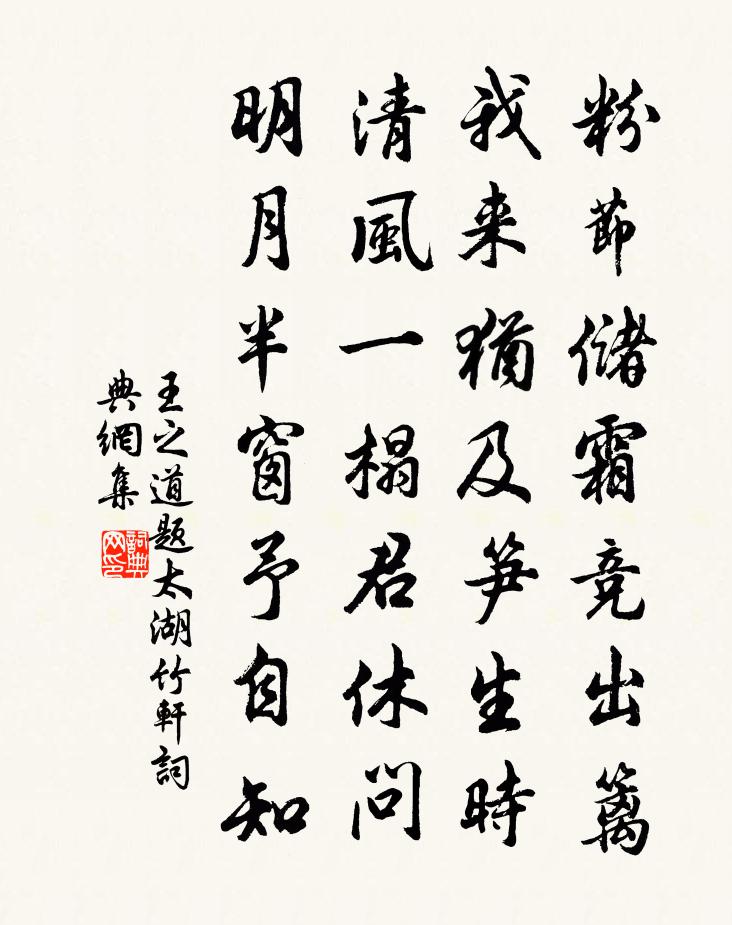 粉節儲霜竞出篱
我来猶及笋生時
清風一榻君休問
明月半窗予自知
王之道题太湖竹軒詞
典網集
詞典网印